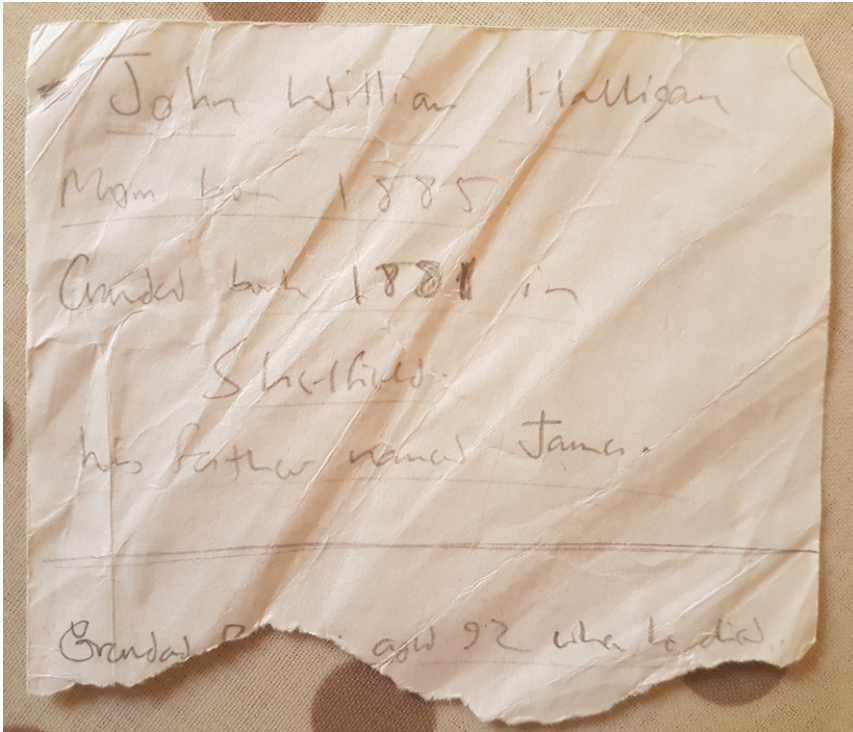 John William Halligan
Mam born 1885
Grandad born 1881 in
Sheffield.
his father named James.
Grandad aged 92 when he died